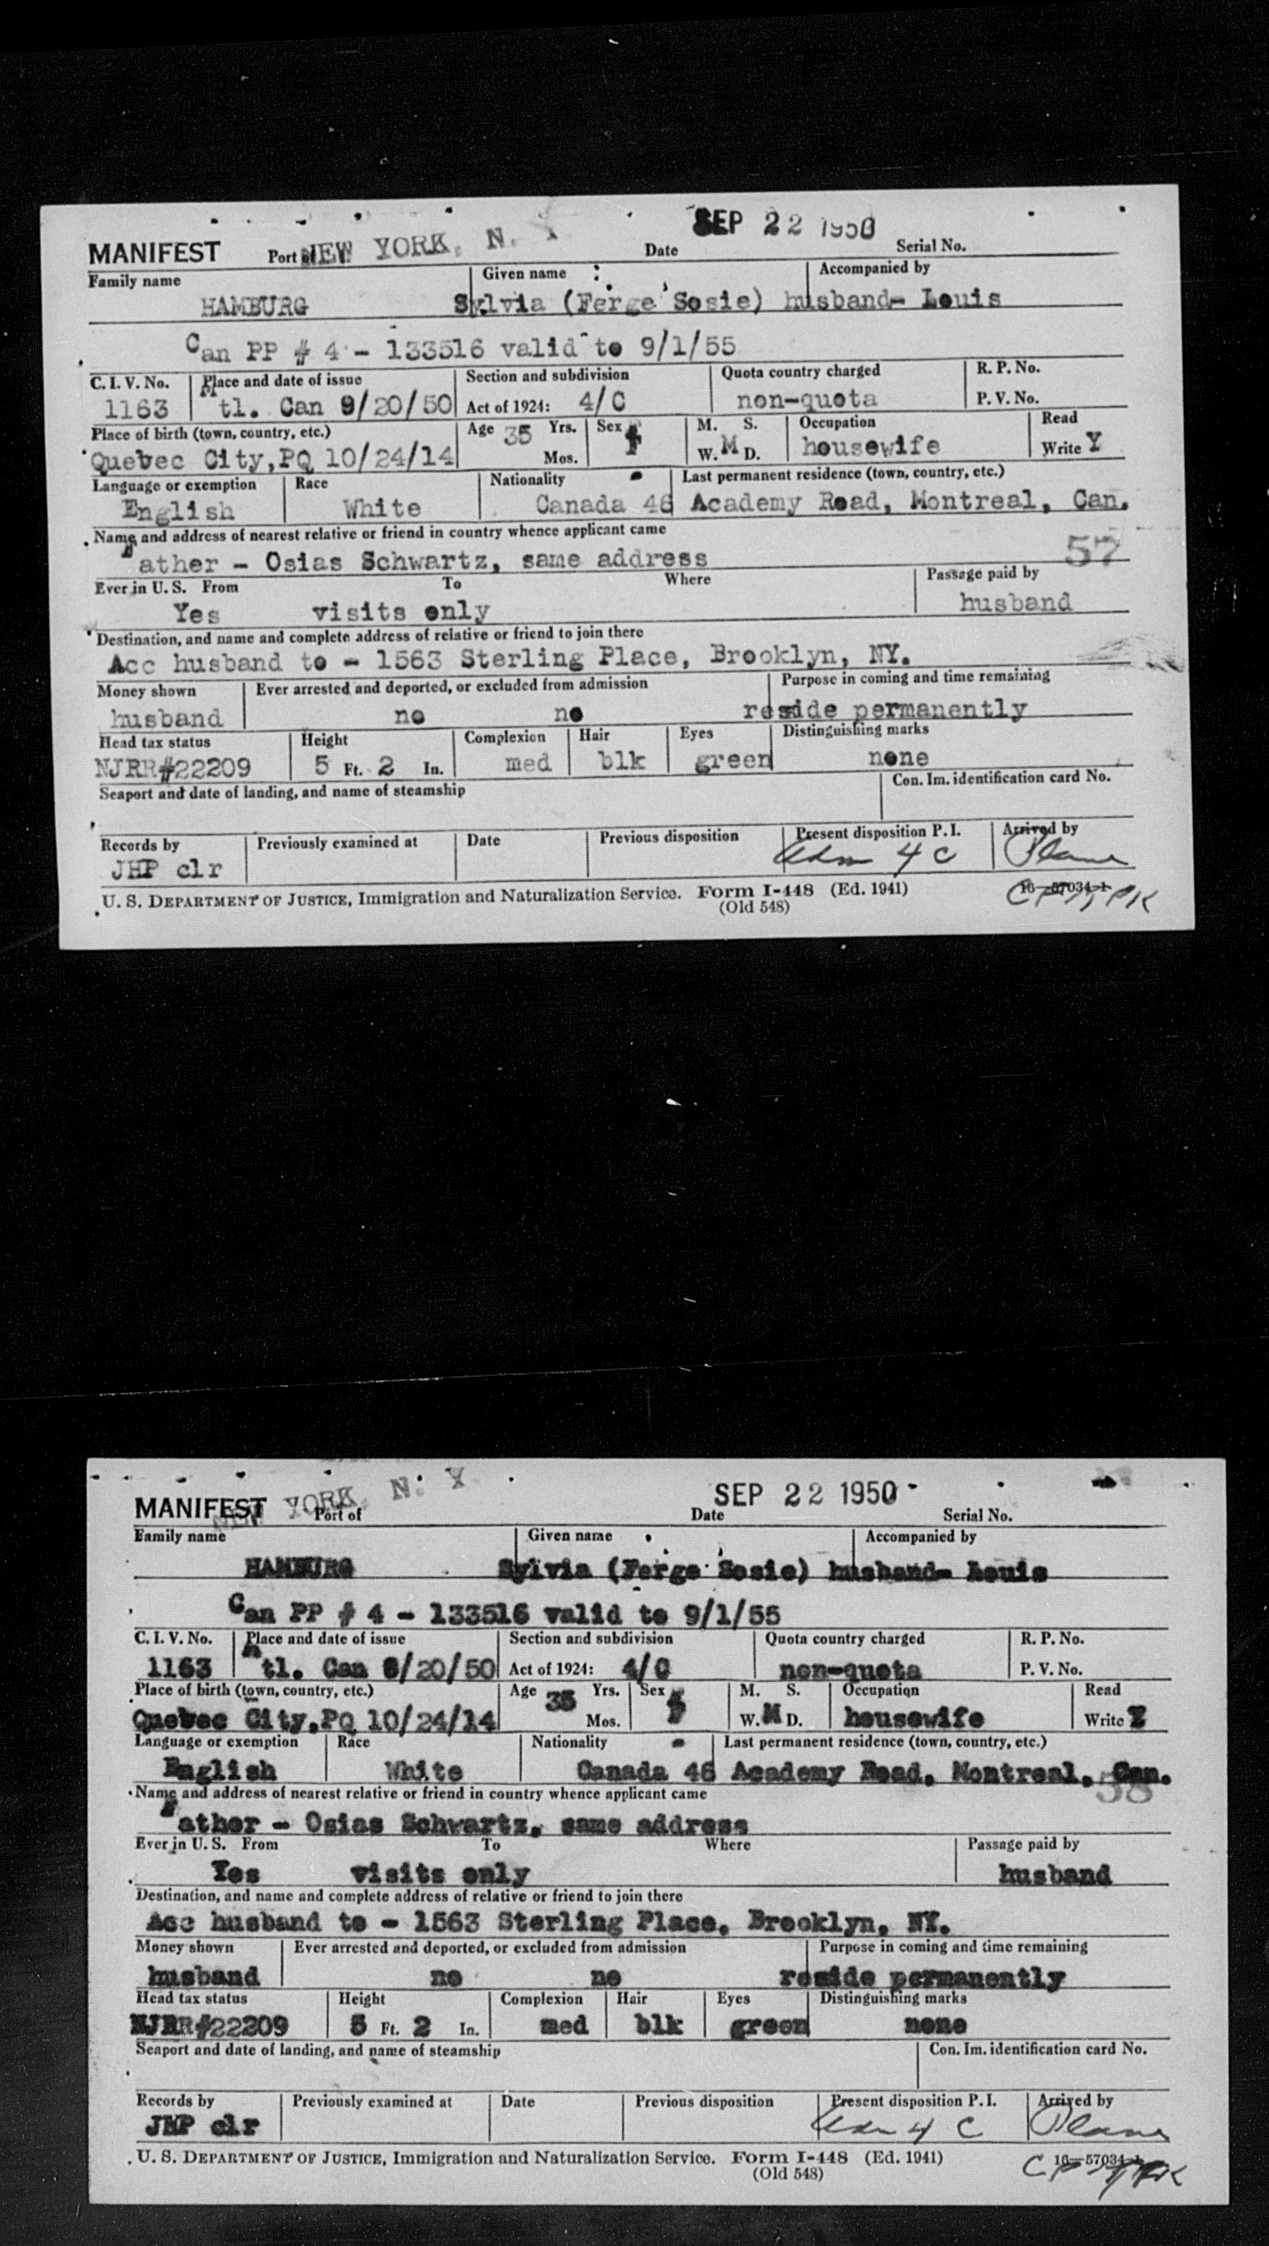 MANIFEST Port of NEW YORK, N. Y Date SEP 22 1950 Serial No.
Family name Given name Accompanied by
HAMBURG Sylvia (Ferge Sosie) husband- Louis
Can PP # 4 - 133516 valid to 9/1/55
C. I. V. No. Place and date of issue Section and subdivision Quota country charged R. P. No.
1163 Mtl. Can 9/20/50 Act of 1924: 4/C non-quota P. V. No.
Place of birth (town, country, etc.) Age 35 Yrs. Sex F M. S. Occupation Read
Quebec City,PQ 10/24/14 Mos. W. M D. housewife Write Y
Language or exemption Race Nationality Last permanent residence (town, country, etc.)
English White Canada 46 Academy Road, Montreal, Can.
Name and address of nearest relative or friend in country whence applicant came
Father - Osias Schwartz, same address 57
Ever in U. S. From To Where Passage paid by
Yes visits only husband
Destination, and name and complete address of relative or friend to join there
Acc husband to - 1563 Sterling Place, Brooklyn, NY.
Money shown Ever arrested and deported, or excluded from admission Purpose in coming and time remaining
husband no no reside permanently
Head tax status Height Complexion Hair Eyes Distinguishing marks
NJRR#22209 5 Ft. 2 In. med blk green none
Seaport and date of landing, and name of steamship Con. Im. identification card No.
Records by Previously examined at Date Previous disposition Present disposition P. I. Arrived by
JHP clr Adm 4 C Plane
U. S. DEPARTMENT OF JUSTICE, Immigration and Naturalization Service. Form I-448 (Ed. 1941) 16—57034-1
(Old 548)
MANIFEST Port of NEW YORK, N. Y Date SEP 22 1950 Serial No.
Family name Given name Accompanied by
HAMBURG Sylvia (Ferge Sosie) husband- Louis
Can PP # 4 - 133516 valid to 9/1/55
C. I. V. No. Place and date of issue Section and subdivision Quota country charged R. P. No.
1163 Mtl. Can 9/20/50 Act of 1924: 4/C non-quota P. V. No.
Place of birth (town, country, etc.) Age 35 Yrs. Sex F M. S. Occupation Read
Quebec City,PQ 10/24/14 Mos. W. M D. housewife Write Y
Language or exemption Race Nationality Last permanent residence (town, country, etc.)
English White Canada 46 Academy Road, Montreal, Can.
Name and address of nearest relative or friend in country whence applicant came 58
Father - Osias Schwartz, same address
Ever in U. S. From To Where Passage paid by
Yes visits only husband
Destination, and name and complete address of relative or friend to join there
Acc husband to - 1563 Sterling Place, Brooklyn, NY.
Money shown Ever arrested and deported, or excluded from admission Purpose in coming and time remaining
husband no no reside permanently
Head tax status Height Complexion Hair Eyes Distinguishing marks
NJRR#22209 5 Ft. 2 In. med blk green none
Seaport and date of landing, and name of steamship Con. Im. identification card No.
Records by Previously examined at Date Previous disposition Present disposition P. I. Arrived by
JHP clr Adm 4 C Plane
U. S. DEPARTMENT OF JUSTICE, Immigration and Naturalization Service. Form I-448 (Ed. 1941) 16—57034-1
(Old 548)